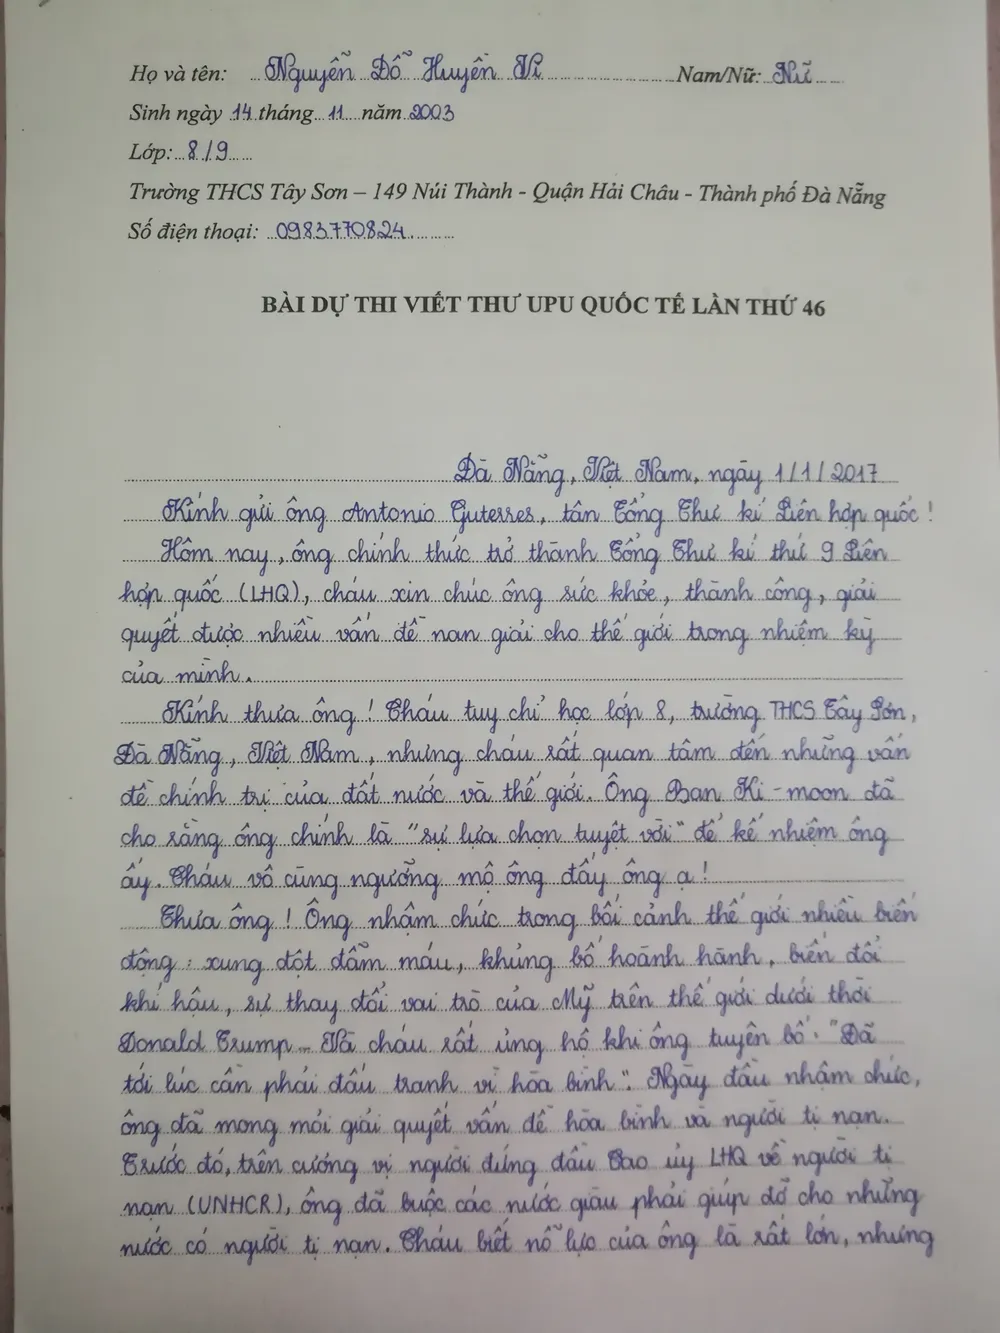 Họ và tên: Nguyễn Đỗ Huyền Vi Nam/Nữ: Nữ
Sinh ngày 14 tháng 11 năm 2003
Lớp: 8/9
Trường THCS Tây Sơn – 149 Núi Thành - Quận Hải Châu - Thành phố Đà Nẵng
Số điện thoại: 0983770824
BÀI DỰ THI VIẾT THƯ UPU QUỐC TẾ LẦN THỨ 46
Đà Nẵng, Việt Nam, ngày 1/1/2017
Kính gửi ông Antonio Guterres, tân Tổng Thư kí Liên hợp quốc!
Hôm nay, ông chính thức trở thành Tổng Thư kí thứ 9 Liên
hợp quốc (LHQ), cháu xin chúc ông sức khỏe, thành công, giải
quyết được nhiều vấn đề nan giải cho thế giới trong nhiệm kỳ
của mình.
Kính thưa ông! Cháu tuy chỉ học lớp 8, trường THCS Tây Sơn,
Đà Nẵng, Việt Nam, nhưng cháu rất quan tâm đến những vấn
đề chính trị của đất nước và thế giới. Ông Ban Ki-moon đã
cho rằng ông chính là "sự lựa chọn tuyệt vời" để kế nhiệm ông
ấy. Cháu vô cùng ngưỡng mộ ông đấy ông ạ!
Thưa ông! Ông nhậm chức trong bối cảnh thế giới nhiều biến
động: xung đột đẫm máu, khủng bố hoành hành, biến đổi
khí hậu, sự thay đổi vai trò của Mỹ trên thế giới dưới thời
Donald Trump... Và cháu rất ủng hộ khi ông tuyên bố: "Đã
tới lúc cần phải đấu tranh vì hòa bình". Ngày đầu nhậm chức,
ông đã mong mỏi giải quyết vấn đề hòa bình và người tị nạn.
Trước đó, trên cương vị người đứng đầu Cao ủy LHQ về người tị
nạn (UNHCR), ông đã buộc các nước giàu phải giúp đỡ cho những
nước có người tị nạn. Cháu biết nỗ lực của ông là rất lớn, nhưng